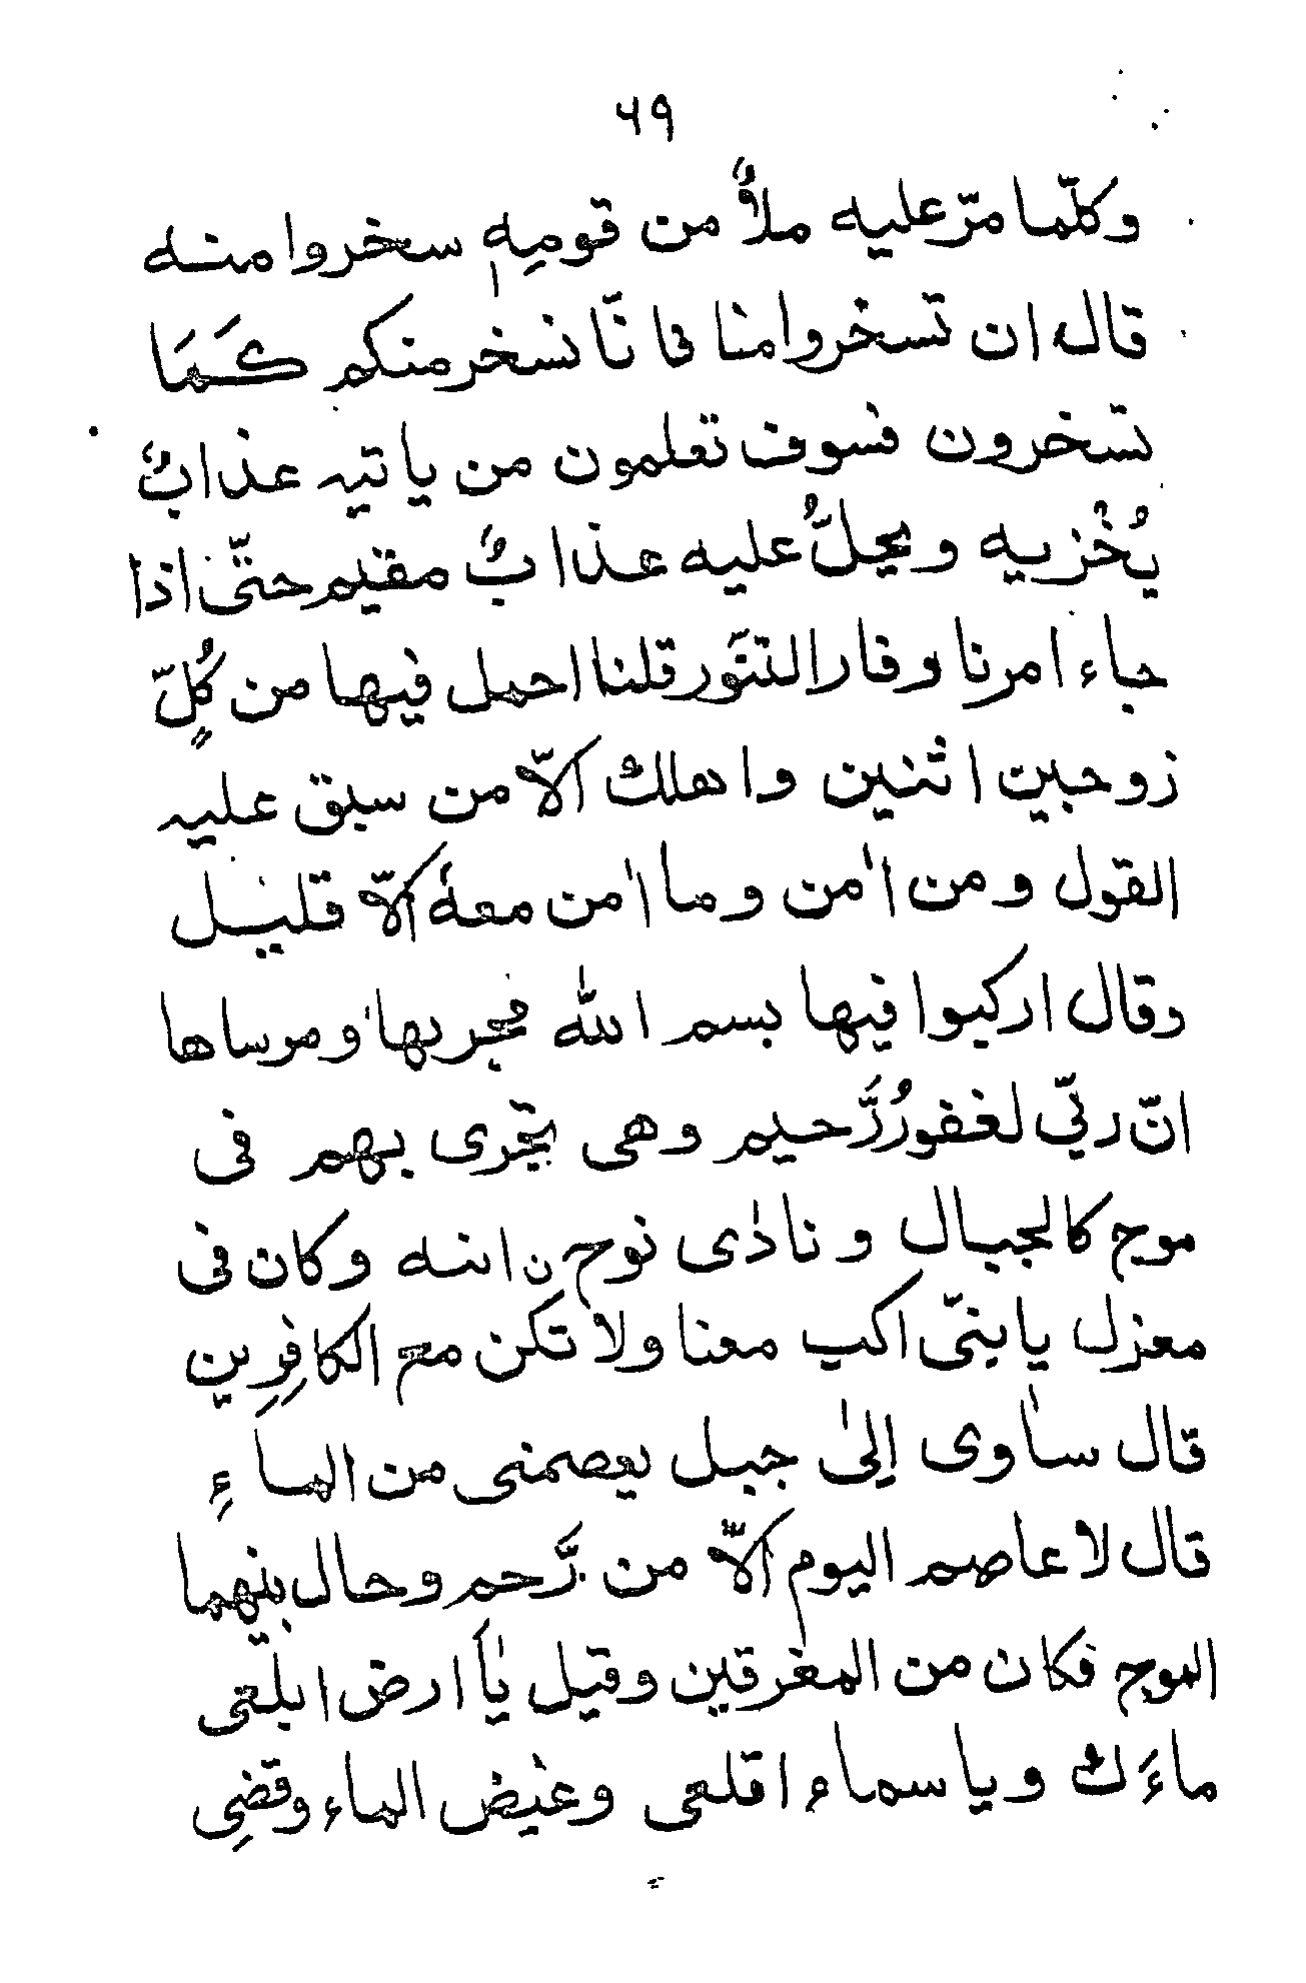 ٦٩
وكلّما مرّ عليه ملأٌ من قومِهٖ سخروا منه
قال ان تسخروا منا فانّا نسخر منكم كَمَا
تسخرون فسوف تعلمون من ياتيه عذابٌ
يُخْزيه ويحلُّ عليه عذابٌ مقيم حتّى اذا
جاء امرنا وفار التنّور قلنا احمل فيها من كُلٍّ
زوجين اثنين واهلك الاّ من سبق عليه
القول ومن اٰمن وما اٰمن معهٗ الاّ قليل
وقال اركبوا فيها بسم اللّٰه مجريها ومرساها
انّ ربّي لغفورُرَّحيم وهى تجرى بهم فى
موج كالجبال ونادٰى نوح ن ابنه وكان فى
معزل يا بنىّ اكب معنا ولا تكن مع الكافِرِين
قال ساٰوى اِلىٰ جبل يعصمنى من الماءِ
قال لا عاصم اليوم الاّ من رَّحم وحال بينهما
الموج فكان من المغرقين وقيل يٰاَ ارض ابلعى
ماءَك ويا سماء اقلعى وغيض الماء وقضِى